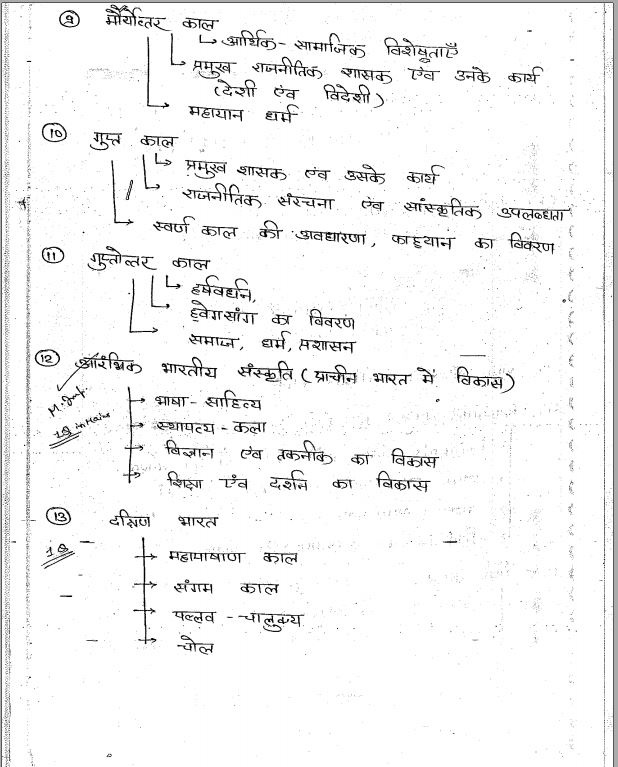 ⑨ मौर्योत्तर काल
↳ आर्थिक - सामाजिक विशेषताएँ
→ प्रमुख राजनीतिक शासक एंव उनके कार्य
(देशी एंव विदेशी)
→ महायान धर्म
⑩ गुप्त काल
↳ प्रमुख शासक एंव उसके कार्य
↳ राजनीतिक संरचना एंव सांस्कृतिक उपलब्धता
→ स्वर्ण काल की अवधारणा, फाह्यान का विवरण
⑪ गुप्तोत्तर काल
↳ हर्षवर्धन,
↳ ह्वेगसांग का विवरण
→ समाज, धर्म, प्रशासन
⑫ आरंभिक भारतीय संस्कृति (प्राचीन भारत में विकास)
M. Imp.
1Q in Mains
→ भाषा - साहित्य
→ स्थापत्य - कला
→ विज्ञान एंव तकनीक का विकास
→ शिक्षा एंव दर्शन का विकास
⑬ दक्षिण भारत
1Q
→ महापाषाण काल
→ संगम काल
→ पल्लव - चालुक्य
→ चोल